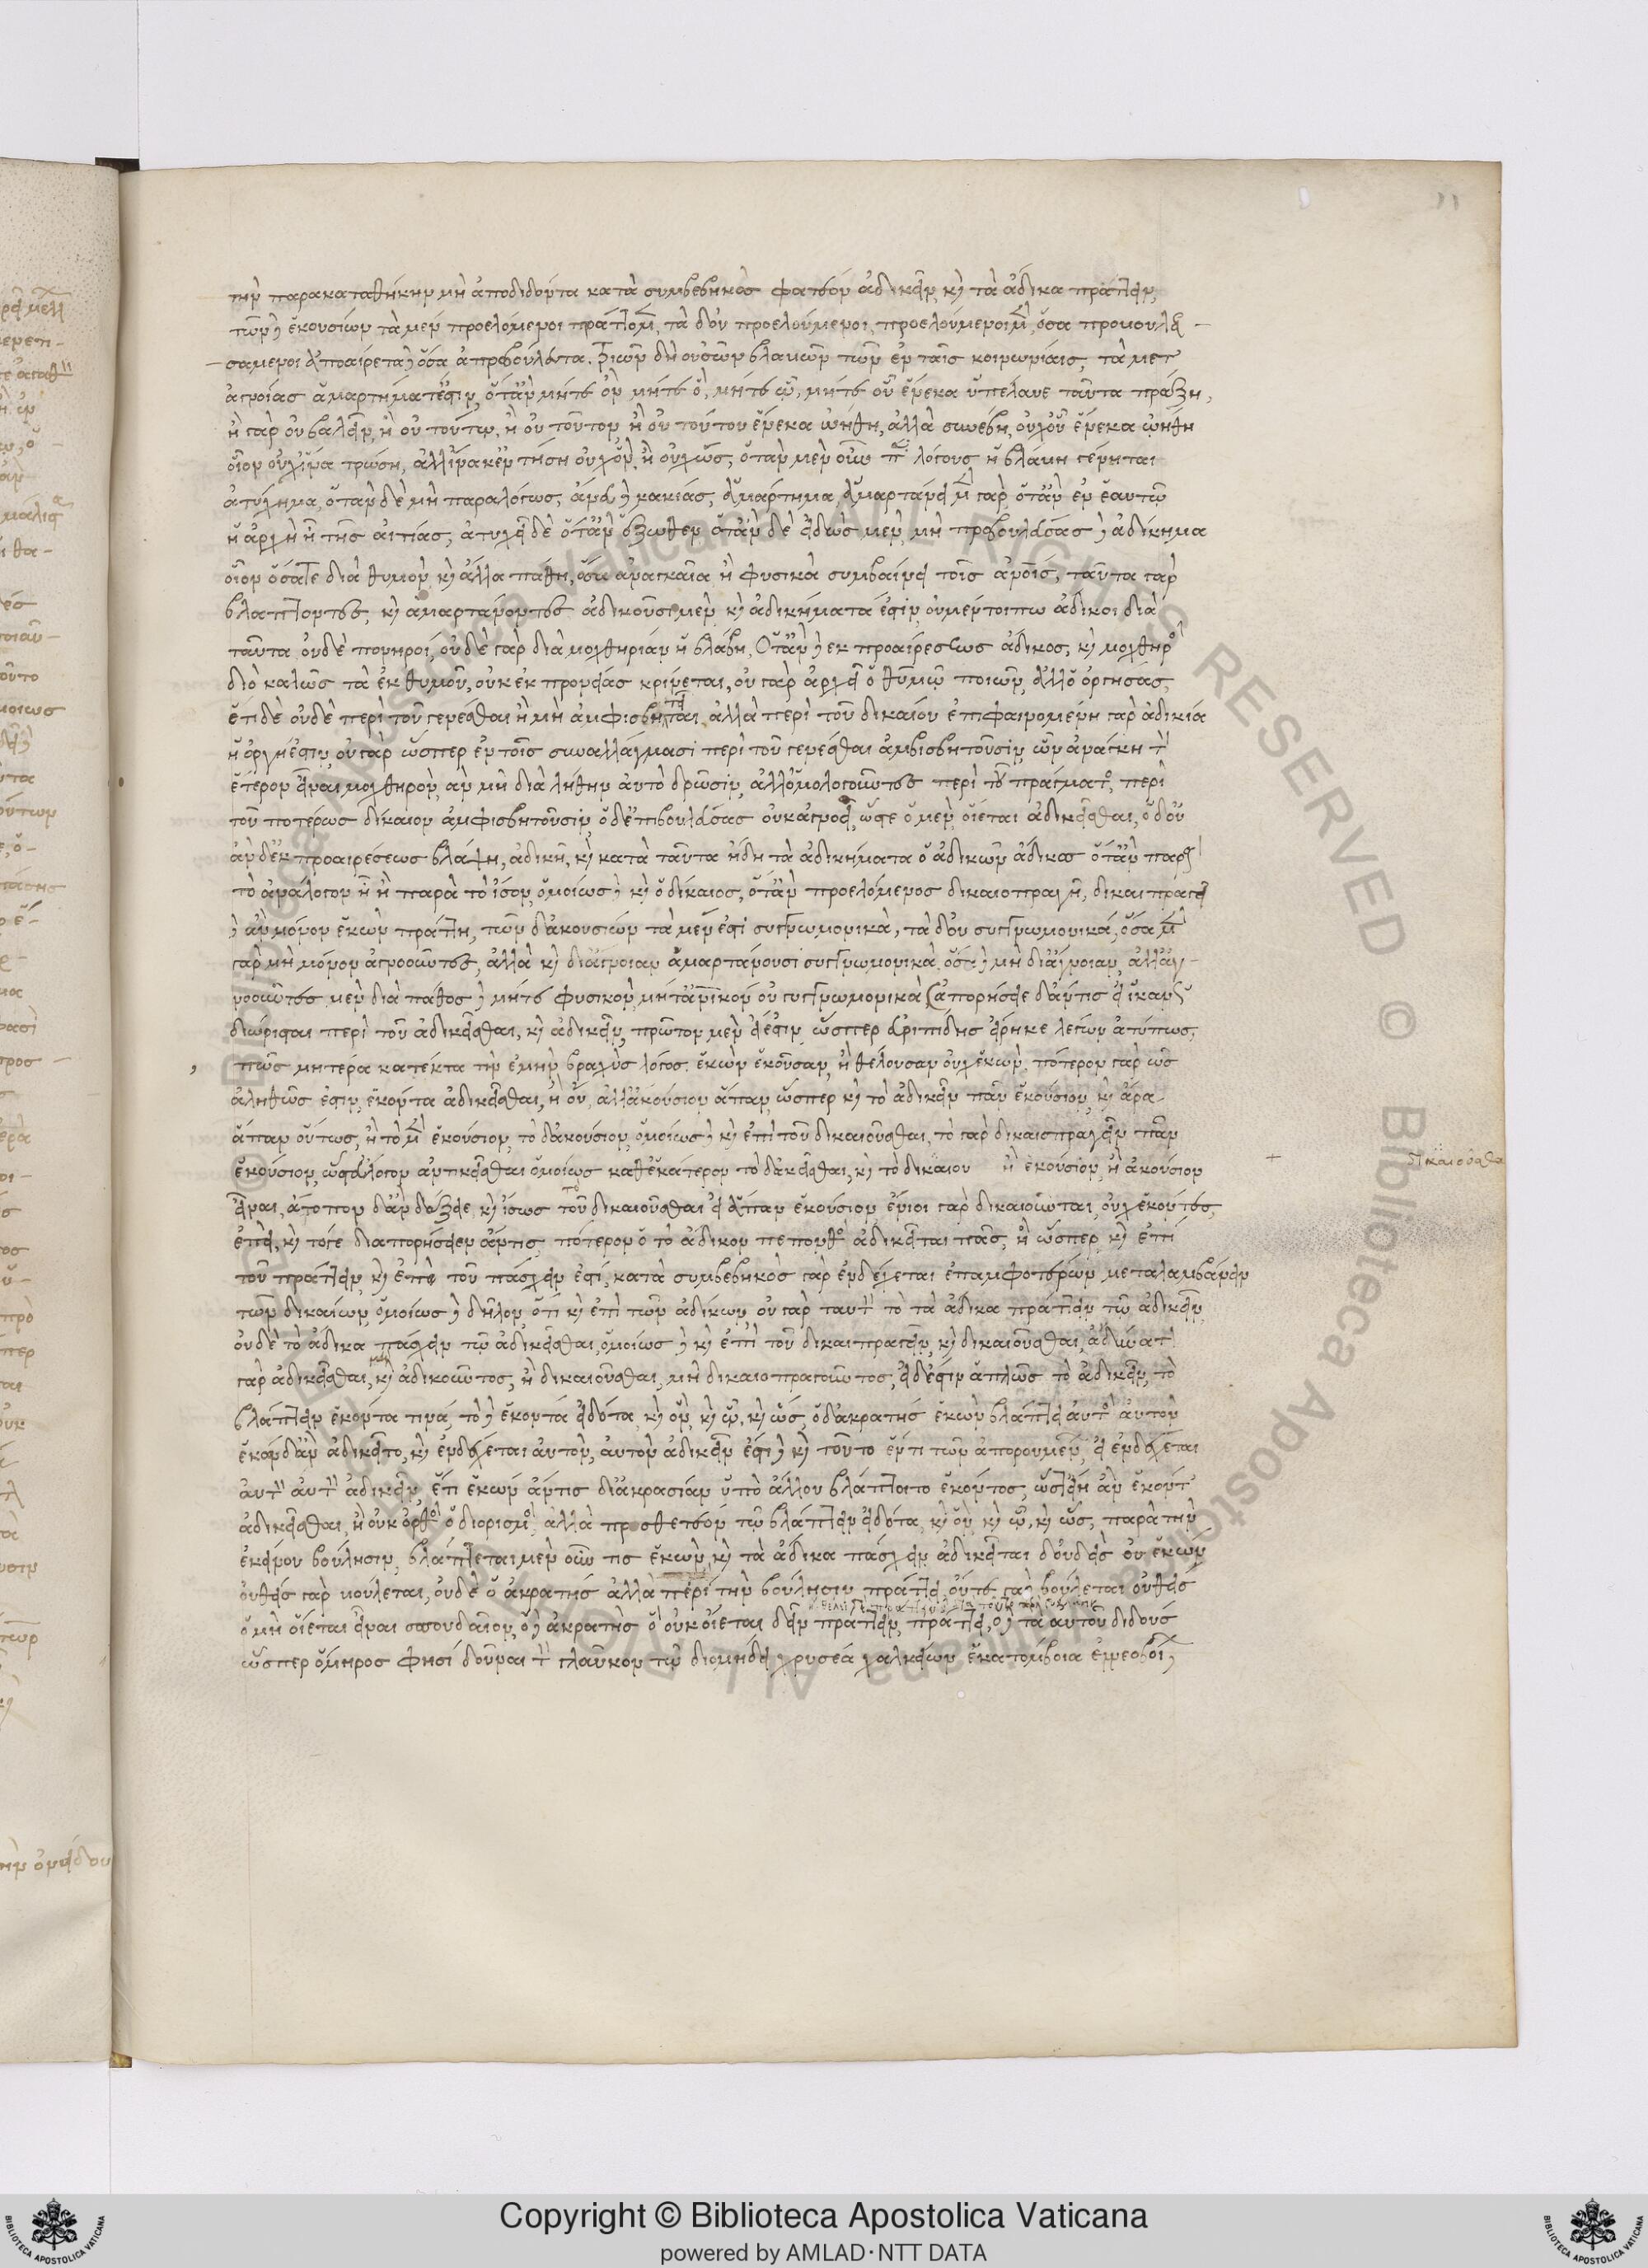 τὴν παρακαταθήκην μὴ ἀποδιδόντα κατὰ συμβεβηκὸς φατέον ἀδικεῖν, καὶ τὰ ἄδικα πράττειν,
τῶν δὲ ἑκουσίων τὰ μὲν προελόμενοι πράττομεν, τὰ δ' οὐ προελούμενοι, προελούμενοι μὲν, ὅσα προβουλευ-
σάμενοι ἀπροαίρετα δὲ ὅσα ἀπροβούλευτα. τριῶν δὴ οὐσῶν βλαβῶν τῶν ἐν ταῖς κοινωνίαις, τὰ μετ'
ἀγνοίας ἁμαρτήματά ἐστιν, ὅταν μήτε ὃν μήτε ὃ, μήτε ᾧ, μήτε οὗ ἕνεκα ὑπέλαβε ταῦτα πράξῃ,
ἢ γὰρ οὐ βαλεῖν, ἢ οὐ τούτῳ, ἢ οὐ τοῦτον ἢ οὐ τούτου ἕνεκα ᾠήθη, ἀλλὰ συνέβη, οὐχ οὗ ἕνεκα ᾠήθη
οἷον οὐχ ἵνα τρώσῃ, ἀλλ' ἵνα κεντήσῃ οὐχ ὃν, ἢ οὐχ ὥς, ὅταν μὲν οὖν παραλόγους ἡ βλάβη γένηται
ἀτύχημα, ὅταν δὲ μὴ παραλόγως, ἄνευ δὲ κακίας, ἁμάρτημα, ἁμαρτάνει μὲν γὰρ, ὅταν ἐν ἑαυτῷ
ἡ ἀρχὴ ᾖ τῆς αἰτίας, ἀτυχεῖ δὲ ὅταν ἔξωθεν ὅταν δὲ εἰδὼς μὲν, μὴ προβουλεύσας δὲ ἀδίκημα
οἷον ὅσα τε διὰ θυμὸν, καὶ ἄλλα πάθη, ὅσα ἀναγκαῖα ἢ φυσικὰ συμβαίνει τοῖς ἀνθρώποις, ταῦτα γὰρ
βλάπτοντες, καὶ ἁμαρτάνοντες ἀδικοῦσι μὲν, καὶ ἀδικήματά ἐστιν, οὐ μέντοι πω ἄδικοι διὰ
ταῦτα οὐδὲ πονηροί, οὐδὲ γὰρ διὰ μοχθηρίαν ἡ βλάβη, ὅταν δὲ ἐκ προαιρέσεως ἄδικος, καὶ μοχθηρὸς
διὸ καλῶς τὰ ἐκ θυμοῦ, οὐκ ἐκ προνοίας κρίνεται, οὐ γὰρ ἄρχει ὁ θυμῷ ποιῶν, ἀλλ' ὁ ὀργίσας,
ἔτι δὲ οὐδὲ περὶ τοῦ γενέσθαι ἢ μὴ ἀμφισβητεῖται, ἀλλὰ περὶ τοῦ δικαίου ἐπιφαινομένη γὰρ ἀδικία
ἡ ὀργή ἐστιν, οὐ γὰρ ὥσπερ ἐν τοῖς συναλλάγμασι περὶ τοῦ γενέσθαι ἀμφισβητοῦσιν, ὧν ἀνάγκη τὸν
ἕτερον εἶναι μοχθηρὸν, ἂν μὴ διὰ λήθην αὐτὸ δρῶσιν, ἀλλ' ὁμολογοῦντες περὶ τοῦ πράγματος, περὶ
τοῦ ποτέρως δίκαιον ἀμφισβητοῦσιν, ὁ δ' ἐπιβουλεύσας οὐκ ἀγνοεῖ, ὥστε ὁ μὲν, οἴεται ἀδικεῖσθαι, ὁ δ' οὔ
ἂν δ' ἐκ προαιρέσεως βλάψῃ, ἀδικεῖ, καὶ κατὰ ταῦτα ἤδη τὰ ἀδικήματα ὁ ἀδικῶν ἄδικος ὅταν παρὰ
τὸ ἀνάλογον ᾖ ἢ παρὰ τὸ ἴσον, ὁμοίως δὲ καὶ ὁ δίκαιος, ὅταν προελόμενος δικαιοπραγῇ, δικαιπραγεῖ
δὲ ἂν μόνον ἑκὼν πράττῃ, τῶν δ' ἀκουσίων τὰ μέν ἐστι συγγνωμονικὰ, τὰ δ' οὐ συγγνωμονικά, ὅσα μὲν
γὰρ μὴ μόνον ἀγνοοῦντες, ἀλλὰ καὶ δι' ἄγνοιαν ἁμαρτάνουσι συγγνωμονικὰ, ὅσα δὲ μὴ δι' ἄγνοιαν, ἀλλ' ἀγ-
νοοῦντες μὲν διὰ πάθος δὲ μήτε φυσικὸν, μήτ' ἀνθρωπικὸν οὐ συγγνωμονικὰ ἀπορήσειε δ' ἄν τις εἰ ἱκανῶς
διώρισται περὶ τοῦ ἀδικεῖσθαι, καὶ ἀδικεῖν, πρῶτον μὲν εἰ ἔστιν, ὥσπερ εὐριπίδης εἴρηκε λέγων ἀτόπως,
πῶς μητέρα κατέκτα τὴν ἐμὴν βραχὺς λόγος. ἑκὼν ἑκοῦσαν, ἢ θέλουσαν οὐχ ἑκὼν. πότερον γὰρ ὡς
ἀληθῶς ἐστιν, ἑκόντα ἀδικεῖσθαι, ἢ οὔ, ἀλλ' ἀκούσιον ἅπαν, ὥσπερ καὶ τὸ ἀδικεῖν πᾶν ἑκούσιον, καὶ ἆρα
ἅπαν οὕτως, ἢ τὸ μὲν ἑκούσιον, τὸ δ' ἀκούσιον, ὁμοίως δὲ καὶ ἐπὶ τοῦ δικαιοῦσθαι, τὸ γὰρ δικαιοπραγεῖν πᾶν
ἑκούσιον, ὥστ' εὔλογον ἀντικεῖσθαι ὁμοίως καθ' ἑκάτερον τὸ δ' ἀκεῖσθαι, καὶ τὸ δικαίου ἢ ἑκούσιον, ἢ ἀκούσιον
δικαιοῦσθαι
εἶναι, ἄτοπον δ' ἂν δόξειε, καὶ ἴσως τοῦ δικαιοῦσθαι εἰ ἅπαν ἑκούσιον ἔνιοι γὰρ δικαιοῦνται, οὐχ ἑκόντες,
ἐπεὶ, καὶ τόγε διαπορήσειεν ἄν τις, πότερον ὁ τὸ ἄδικον πεπονθὼς ἀδικεῖται πᾶς, ἢ ὥσπερ, καὶ ἐπὶ
τοῦ πράττειν, καὶ ἐπὶ τοῦ πάσχειν ἐστί, κατὰ συμβεβηκὸς γὰρ ἐνδέχεται ἐπ' ἀμφοτέρων μεταλαμβάνειν
τῶν δικαίων, ὁμοίως δὲ δῆλον ὅτι καὶ ἐπὶ τῶν ἀδίκων, οὐ γὰρ ταυτὸν τὸ τὰ ἄδικα πράττειν τῷ ἀδικεῖν,
οὐδὲ τὸ ἄδικα πάσχειν τῷ ἀδικεῖσθαι, ὁμοίως δὲ καὶ ἐπὶ τοῦ δικαιπραγεῖν, καὶ δικαιοῦσθαι, ἀδύνατον
γὰρ ἀδικεῖσθαι, μὴ ἀδικοῦντος, ἢ δικαιοῦσθαι, μὴ δικαιοπραγοῦντος, εἰ δ' ἐστὶν ἁπλῶς τὸ ἀδικεῖν, τὸ
βλάπτειν ἑκόντα τινά, τὸ δὲ ἑκόντα εἰδότα, καὶ ὃν, καὶ ᾧ, καὶ ὥς, ὁ δ' ἀκρατὴς ἑκὼν βλάπτει αὐτὸς αὑτὸν
ἑκών δ' ἂν ἀδικεῖτο, καὶ ἐνδέχεται αὐτὸν, αὑτὸν ἀδικεῖν ἔστι δὲ καὶ τοῦτο ἕν τι τῶν ἀπορουμένων, εἰ ἐνδέχεται
αὐτὸν αὑτὸν ἀδικεῖν, ἔτι ἑκών ἄν τις δι' ἀκρασίαν ὑπὸ ἄλλου βλάπτοιτο ἑκόντος, ὥστ' εἴη ἂν ἑκόντ'
ἀδικεῖσθαι, ἢ οὐκ ὀρθὸς ὁ διορισμὸς, ἀλλὰ προσθετέον τῷ βλάπτειν εἰδότα, καὶ ὃν, καὶ ᾧ, καὶ ὥς, παρὰ τὴν
ἐκείνου βούλησιν, βλάπτεται μὲν οὖν τις ἑκὼν, καὶ τὰ ἄδικα πάσχειν ἀδικεῖται δ' οὐδεὶς οὐ ἑκών
οὐθεὶς γὰρ βούλεται, οὐδὲ ὁ ἀκρατὴς ἀλλὰ περὶ τὴν βούλησιν πράττει, οὔτε γὰρ βούλεται οὐθεὶς
ὃ μὴ οἴεται εἶναι σπουδαῖον, ὁ δὲ ἀκρατὴς ὃ οὐκ οἴεται δεῖν πράττειν, πράττει, ὁ δὲ τὰ αὑτοῦ διδοὺς
ὥσπερ ὅμηρος φησί δοῦναι τὸν γλαῦκον τῷ διομήδει χρυσέα χαλκείων ἑκατόμβοια ἐννεοβοίων